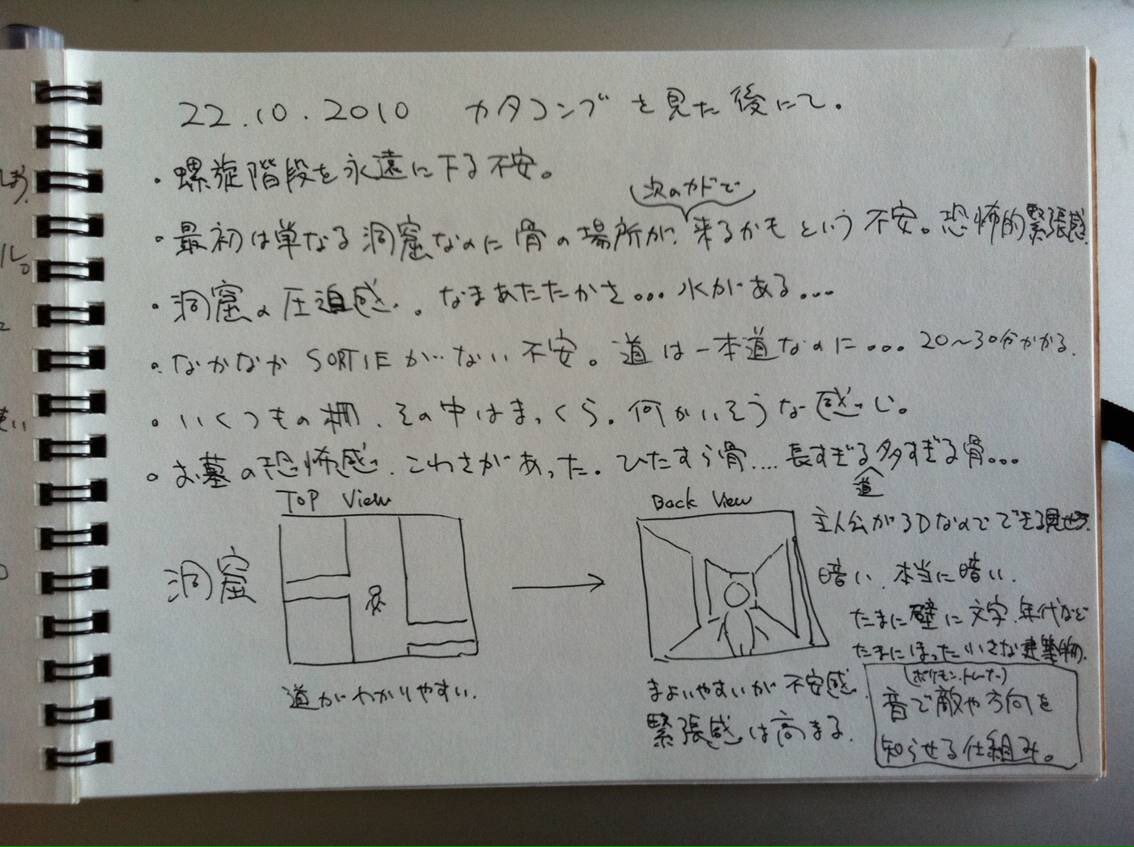 22.10.2010 カタコンブを見た後にて。
・螺旋階段を永遠に下る不安。
次のカドで
・最初は単なる洞窟なのに骨の場所が、来るかもという不安。恐怖的緊張感
・洞窟の圧迫感。なまあたたかさ...水がある...
・なかなかSORTIEがない不安。道は一本道なのに...20〜30分かかる。
・いくつもの柵、その中はまっくら。何かいそうな感じ。
・お墓の恐怖感、こわさがあった。ひたすら骨....長すぎる多すぎる骨...
道
TOP View
Back View
主人公が3Dなのでできる見せ方
洞窟
暗い、本当に暗い、
たまに壁に文字、年代など
たまにほった小さな建築物。
道がわかりやすい。
まよいやすいが不安感、
緊張感は高まる。
音で敵や方向を
知らせる仕組み。